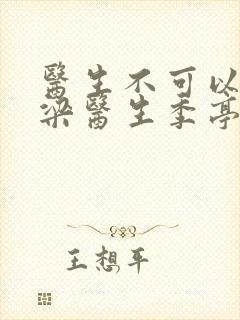 醫生不可以
梁醫生季亭
王想平